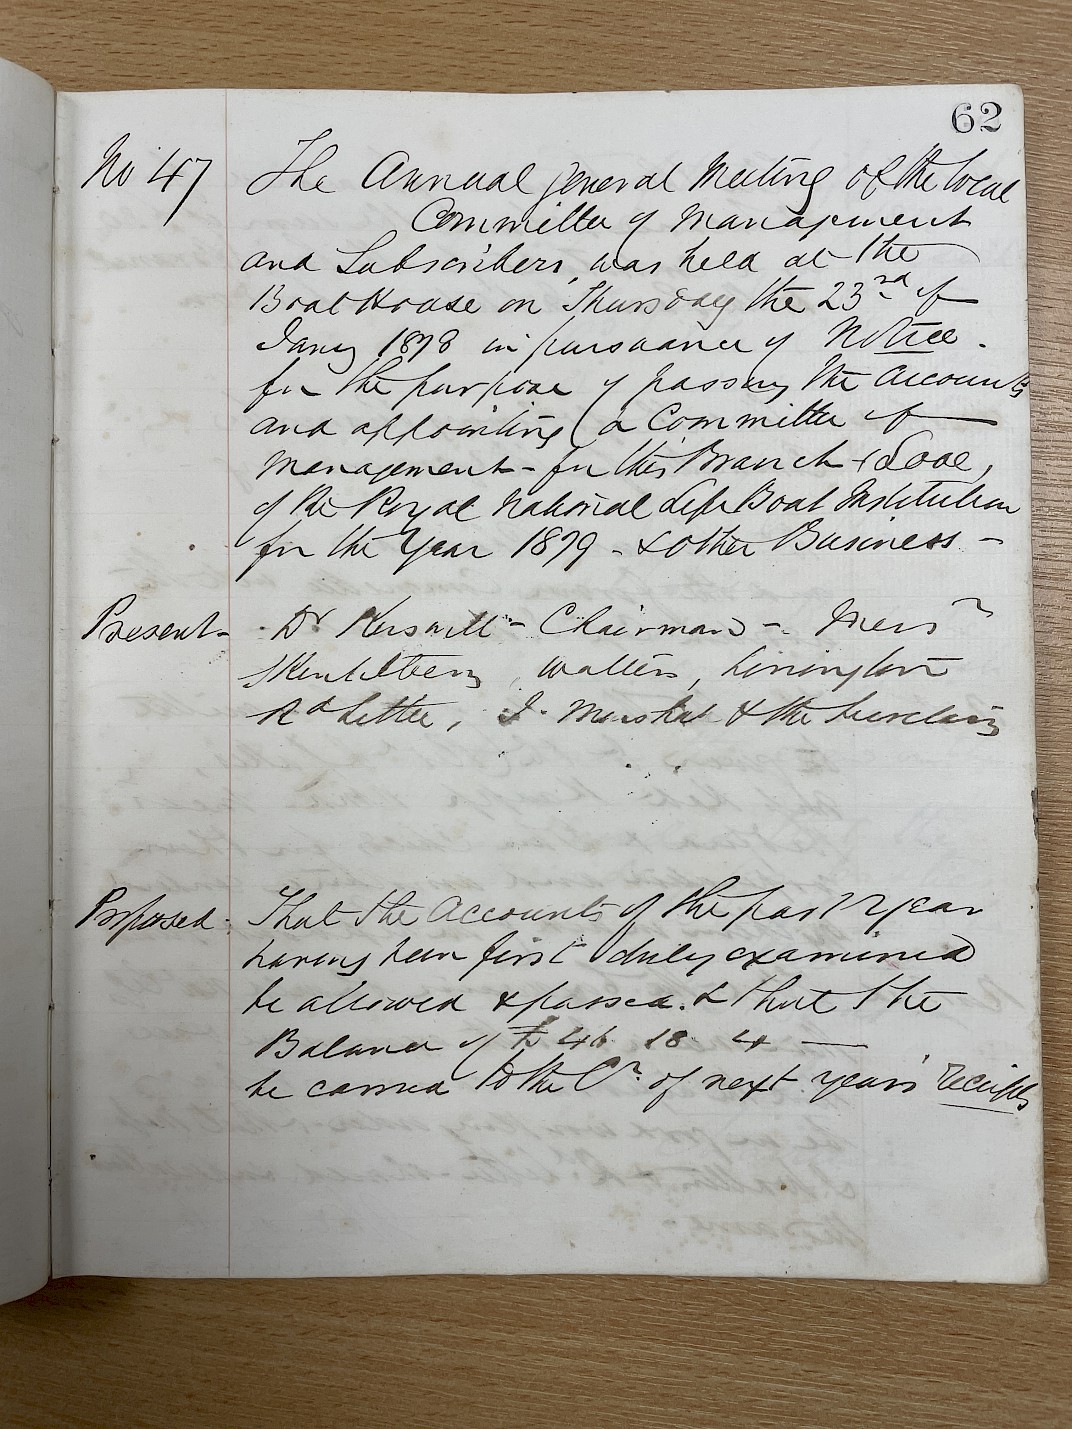 62
No 47 The Annual general Meeting of the local
Committee of Management
and Subscribers, was held at the
Boat House on Thursday the 23rd of
Jany 1878 in pursuance of Notice.
for the purpose of passing the accounts
and appointing a Committee of
Management - for this Branch (Looe,
of the Royal National Life Boat Institution
for the Year 1879 - & other Business -
Present - Dr Kerswill - Chairman -. Messrs
Walters,
Rd Little, J. Marshal & the Secretary
Proposed. That the Accounts of the past year
having been first duly examined
be allowed & passed. & that the
Balance of £ 46 18 4 —
be carried to the Cr. of next year's receipts